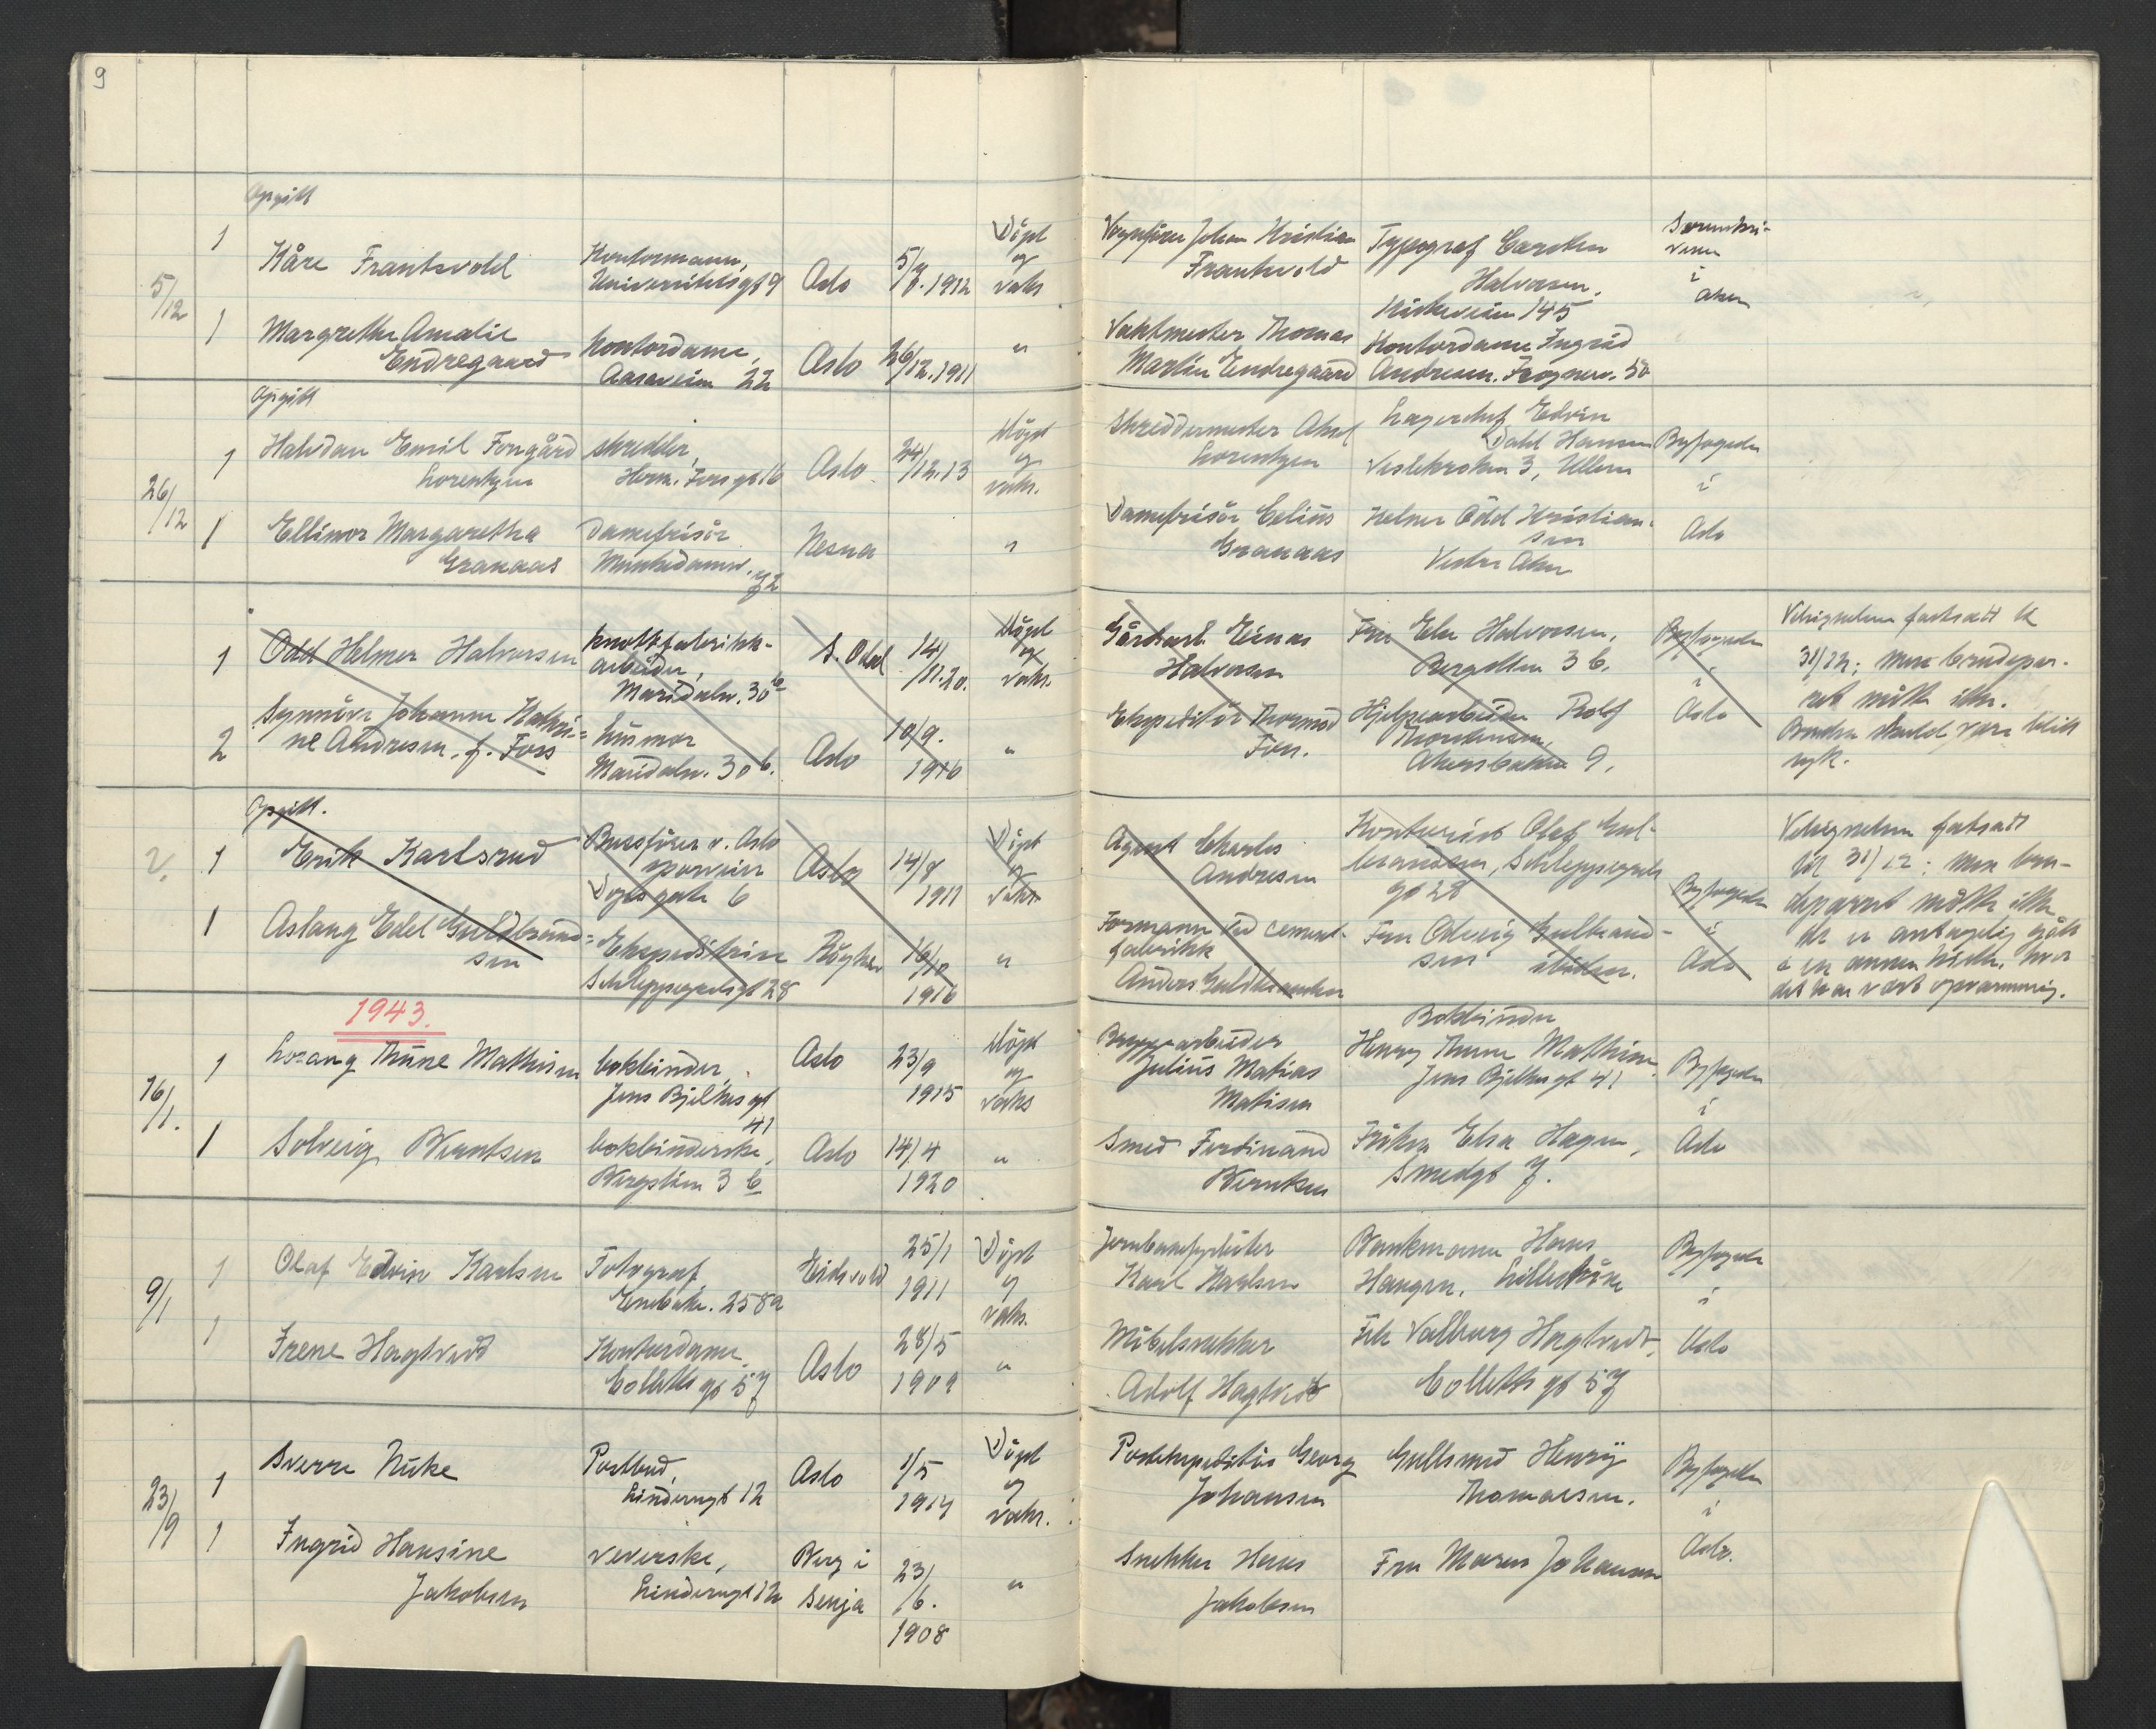 9
Opgitt
5/12
1
Kåre Frantsvold
Kontormann,
Universitetsgt 9
Oslo
5/8. 1912
Döpt
og
vaks.
Vognfører Johan Kristian
Frantsvold
Typograf Carsten
Halvorsen.
Kirkeveien 145
Sorenskri-
veren
i
Aker
1
Margrethe Amalie
Endregaard
Kontordame,
Aasaveien 22
Oslo
26/12. 1911
"
Vaktmester Thomas
Martin Endregaard
Kontordame Ingrid
Andresen. Frognerv. 50
Opgitt
26/12
1
Halvdan Emil Fongård
Lorentzen
skredder,
Herm. Foss gt 16
Oslo
24/12.13
Döpt
og
vaks.
Skreddermester Aksel
Lorentzen
Lagerchef Edvin
Dahl Hansen
Veslekroken 3, Ullern
Byfogden
i
Oslo
1
Ellinor Margaretha
Granaas
Damefrisör
Munkedamsv. 72
Nesna
"
Damefrisör Celius
Granaas
Helmer Odd Kristian-
sen
Vestre Aker
1
Odd Helmer Halvorsen
knottfabrikk-
arbeider,
Maridalsv. 30 b
S. Odal
14/11.20.
Döpt
og
vaks.
Gårdsarb. Einar
Halvorsen
Fru Else Halvorsen,
Bergslien 3 b.
Byfogden
i
Oslo
Velsignelsen fastsatt til
31/12; men brudepar-
ret møtte ikke.
Bruden skulde være blitt
syk.
2
Synnöve Johanne Kathri-
ne Andresen, f. Foss
Husmor
Maridalsv. 30 b.
Oslo
10/9.
1916
"
Ekspeditör Thormod
Foss.
Hjelpearbeider Rolf
Thorstensen,
Akersbakken 9.
Opgitt.
1
Erik Karlsrud
Bussfører v. Oslo
sporveier
Vogts gate 6
Oslo
14/8
1911
Döpt
og
vaks
Agent Charles
Andresen
Kontorist Olaf Gul-
brandsen, Schleppegrels
gt 28
Byfogden
i
Oslo
Velsignelsen fastsatt
til 31/12: men bru-
deparet møtte ikke.
De er antagelig gått
i en annen kirke, hvor
det har vært opvarmning.
1
Aslaug Edel Guldbrand-
sen
Ekspeditrise
Schleppegrelsgt 28
Röyken
16/10
1916
"
Formann ved cement-
fabrikk
Anders Guldbrandsen
Fru Solveig Gulbrand-
sen
1943.
16/1.
1
Lorang Thune Mathisen
bokbinder,
Jens Bjelkes gt
41
Oslo
23/9
1915
Döpt
og
vaks
Bryggearbeider
Julius Matias
Matisen
Bokbinder
Henry Thune Mathisen
Jens Bjelkes gt 41
Byfogden
i
Oslo
1
Solveig Berntsen
bokbinderske,
Bergslien 3 b
Oslo
14/4
1920
"
Smed Ferdinand
Berntsen
Fröken Elsa Hagen,
Smedgt 7.
9/1
1
Olaf Edvin Karlsen
Fotograf,
Enebakv. 258a
Eidsvold
25/1
1911
Döpt
og
vaks.
Jernbanefyrbøter
Karl Karlsen
Bankmann Hans
Haugen. Lilleström
Byfogden
i
Oslo
1
Irene Hagtvedt
Kontordame
Colletts gt 57
Oslo
28/5
1909
"
Möbelsnekker
Adolf Hagtvedt
Frk Valborg Hagtvedt,
Colletts gt 57
23/9
1
Sverre Nicke
Postbud,
Linderngt 12
Oslo
1/5
1914
Döpt
og
vaks.
Postekspeditör Georg
Johansen
Gullsmed Henry
Thomassen.
Byfogden
i
Oslo.
1
Ingrid Hansine
Jakobsen
veverske,
Linderngt 12
Berg i
Senja
23/6.
1908
"
Snekker Hans
Jakobsen
Fru Maren Johansen